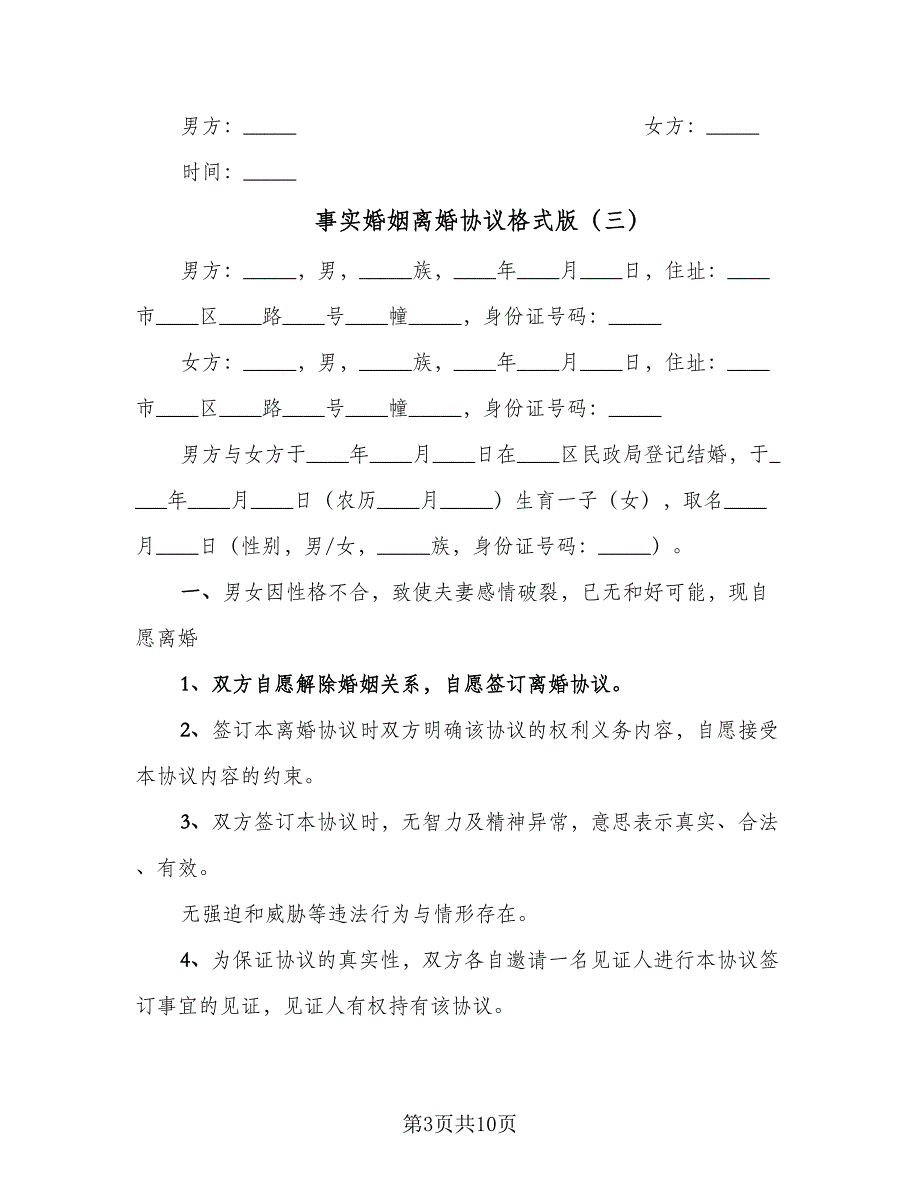 男方：_____ 女方：_____
时间：_____
事实婚姻离婚协议格式版（三）
男方：_____，男，_____族，____年____月____日，住址：____
市____区____路____号____幢_____，身份证号码：_____
女方：_____，男，_____族，____年____月____日，住址：____
市____区____路____号____幢_____，身份证号码：_____
男方与女方于____年____月____日在____区民政局登记结婚，于_
___年____月____日（农历____月_____）生育一子（女），取名____
月____日（性别，男/女，_____族，身份证号码：_____）。
一、男女因性格不合，致使夫妻感情破裂，已无和好可能，现自
愿离婚
1、双方自愿解除婚姻关系，自愿签订离婚协议。
2、签订本离婚协议时双方明确该协议的权利义务内容，自愿接受
本协议内容的约束。
3、双方签订本协议时，无智力及精神异常，意思表示真实、合法
、有效。
无强迫和威胁等违法行为与情形存在。
4、为保证协议的真实性，双方各自邀请一名见证人进行本协议签
订事宜的见证，见证人有权持有该协议。
第3页共10页